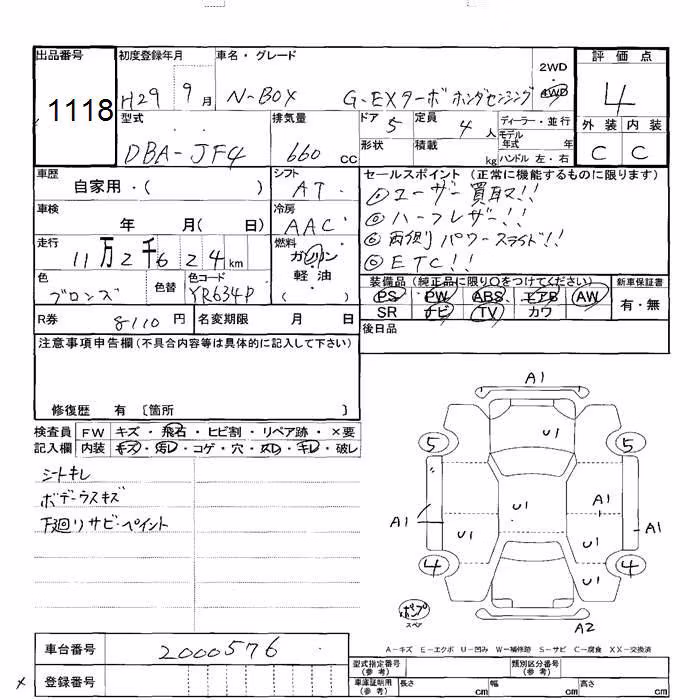 出品番号 初度登録年月 車名・グレード 評価点
1118 H29 9月 N-BOX G・EXターボ ホンダセンシング 2WD 4WD 4
型式 排気量 ドア 5 定員 4人 ディーラー・並行 外装 内装
DBA-JF4 660 cc 形状 積載 kg モデル年式 年 ハンドル 左・右 C C
車歴 シフト セールスポイント (正常に機能するものに限ります)
自家用・( ) AT ユーザー買取!!
車検 冷房 ハーフレザー!!
年 月( 日) AAC 両側パワースライド!!
走行 燃料 ETC!!
11万2千624km ガソリン
軽・油
( )
色 色替 色コード 装備品 (純正品に限り○をつけてください) 新車保証書
ブロンズ YR634P PS PW ABS エアB AW 有・無
SR ナビ TV カワ
R券 8110円 名変期限 月 日 後日品
注意事項申告欄(不具合内容等は具体的に記入して下さい)
修復歴 有 〔箇所 〕
検査員 FW キズ・飛石・ヒビ割・リペア跡・×要
記入欄 内装 キズ・汚レ・コゲ・穴・スレ・キレ・破レ
シートキレ
ボデーウスキズ
下廻りサビ・ペイント
A1
U1
5 5
U1 A1
A1 A1
U1 U1
4 4
U1
ポンプ
スペア
A2
A-キズ E-エクボ U-凹み W-補修跡 S-サビ C-腐食 XX-交換済
車台番号 2000576
型式指定番号(参考) 類別区分番号(参考)
× 登録番号
車庫証明用(参考) 長さ cm 幅 cm 高さ cm